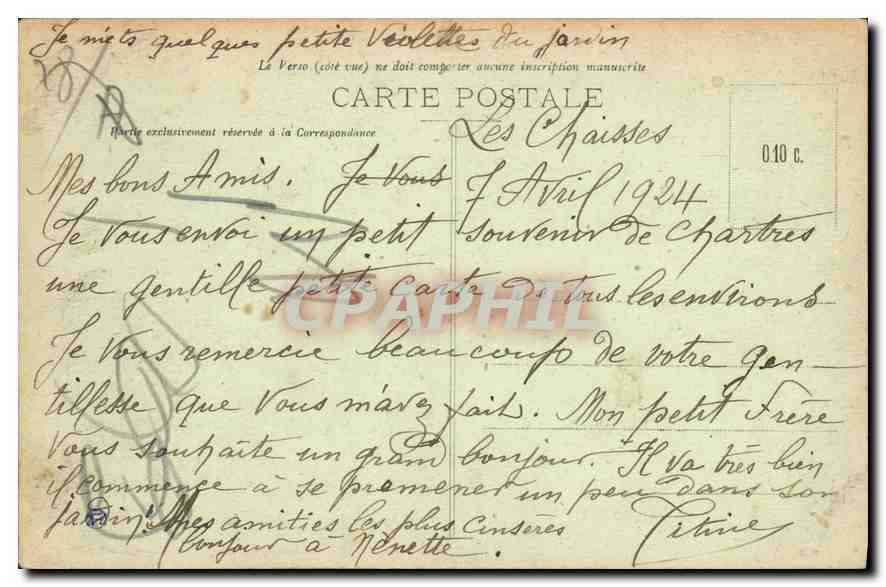 Je mets quelques petite Violettes du jardin
Le Verso (côté vue) ne doit comporter aucune inscription manuscrite
CARTE POSTALE
Partie exclusivement réservée à la Correspondance
Les Chaisses
0.10 c.
Mes bons Amis. Je Vous 7 Avril 1924
Je Vous envoi un petit souvenir de Chartres
une gentille petite carte de tous les environs
Je Vous remercie beaucoup de votre gen-
tillesse que Vous m'avez fait. Mon petit Frère
Vous souhaite un grand bonjour. Il va très bien
il commence à se promener un peu dans son
jardin. Mes amities les plus cinsères
bonjour à Nénette. Titine
CPAPHIL